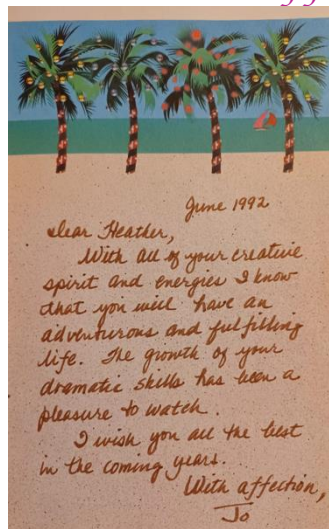 June 1992
Dear Heather,
With all of your creative
spirit and energies I know
that you will have an
adventurous and fulfilling
life. The growth of your
dramatic skills has been a
pleasure to watch.
I wish you all the best
in the coming years.
With affection,
Jo